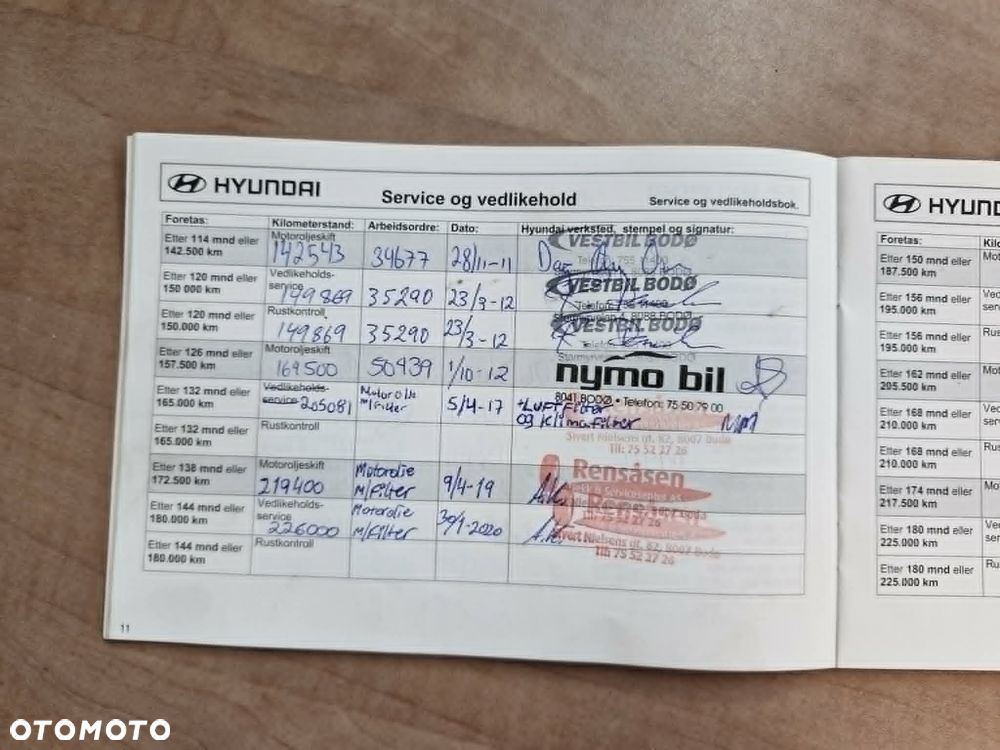 HYUNDAI
Service og vedlikehold
Service og vedlikeholdsbok.
Foretas: Kilometerstand: Arbeidsordre: Dato: Hyundai verksted, stempel og signatur:
Etter 114 mnd eller
142.500 km
Motoroljeskift
142543 34677 28/11-11
VESTBIL BODØ
Etter 120 mnd eller
150 000 km
Vedlikeholds-
service
149869 35290 23/3-12
VESTBIL BODØ
Etter 120 mnd eller
150.000 km
Rustkontroll
149869 35290 23/3-12
VESTBIL BODØ
Etter 126 mnd eller
157.500 km
Motoroljeskift
169500 50439 1/10-12
nymo bil
8041 BODØ • Telefon: 75 50 79 00
Etter 132 mnd eller
165.000 km
Vedlikeholds-
service 205081
Motorolje
m/Filter
5/4-17
+LUFTFilter
og Klimafilter
Sivert Nielsens gt. 82, 8007 Bodø
Tlf: 75 52 27 26
Etter 132 mnd eller
165.000 km
Rustkontroll
Etter 138 mnd eller
172.500 km
Motoroljeskift
219400
Motorolie
m/Filter
9/4-19
Rensåsen
Etter 144 mnd eller
180.000 km
Vedlikeholds-
service
226000
Motorolie
m/Filter
30/1-2020
Sivert Nielsens gt. 82, 8007 Bodø
Tlf: 75 52 27 26
Etter 144 mnd eller
180.000 km
Rustkontroll
11
HYUND
Foretas:
Etter 150 mnd eller
187.500 km
Mot
Etter 156 mnd eller
195.000 km
Ved
ser
Etter 156 mnd eller
195.000 km
Rus
Etter 162 mnd eller
205.500 km
Mot
Etter 168 mnd eller
210.000 km
Ved
ser
Etter 168 mnd eller
210.000 km
Rus
Etter 174 mnd eller
217.500 km
Mot
Etter 180 mnd eller
225.000 km
Ved
ser
Etter 180 mnd eller
225.000 km
Rus
OTOMOTO